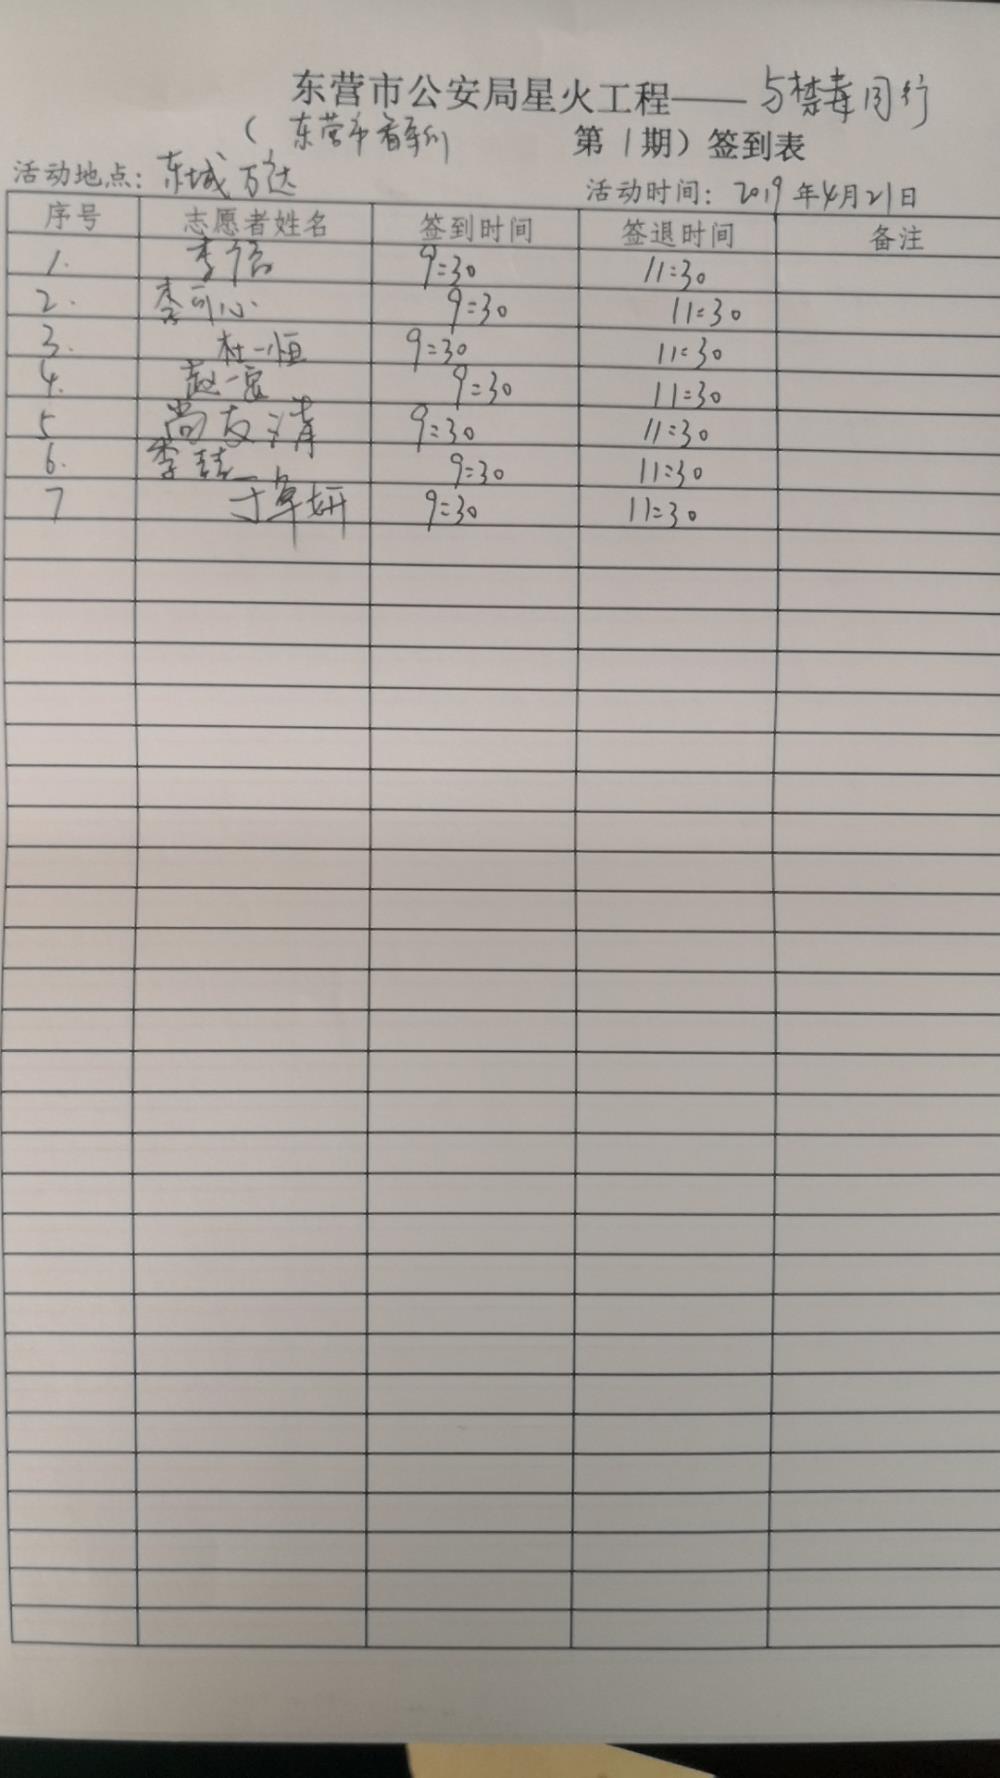 东营市公安局星火工程——与禁毒同行
(东营市 第1期)签到表
活动地点:东城万达 活动时间:2019年4月21日
序号 志愿者姓名 签到时间 签退时间 备注
1. 9:30 11:30
2. 李可心 9:30 11:30
3. 杜一恒 9:30 11:30
4. 赵一 9:30 11:30
5 尚友清 9:30 11:30
6. 李喆 9:30 11:30
7 于卓妍 9:30 11:30